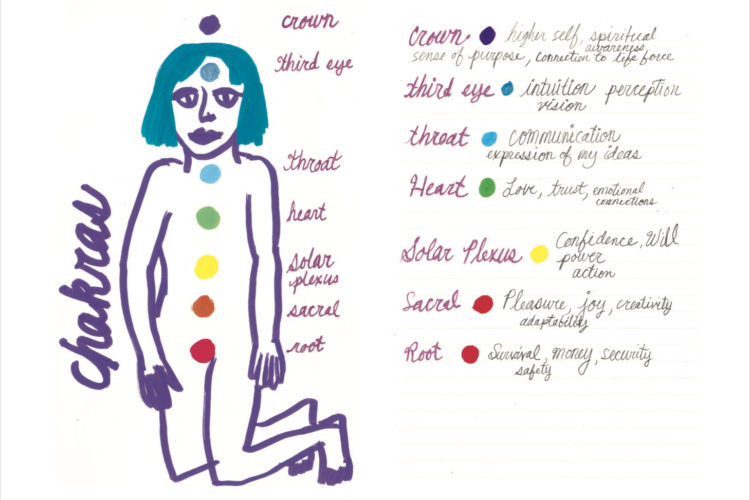 chakras
crown
third eye
throat
heart
solar
plexus
sacral
root
Crown higher self, spiritual
awareness
sense of purpose, connection to life force
third eye intuition perception
vision
throat communication
expression of my ideas
Heart Love, trust, emotional
connections
Solar Plexus Confidence, Will
power
action
Sacral Pleasure, joy, creativity
adaptability
Root Survival, money, security
safety